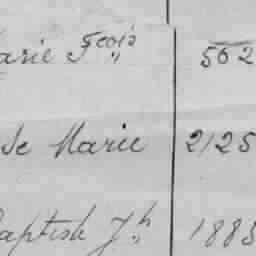 arie Fçois 562
se Marie 2125
aptiste Jh 1885